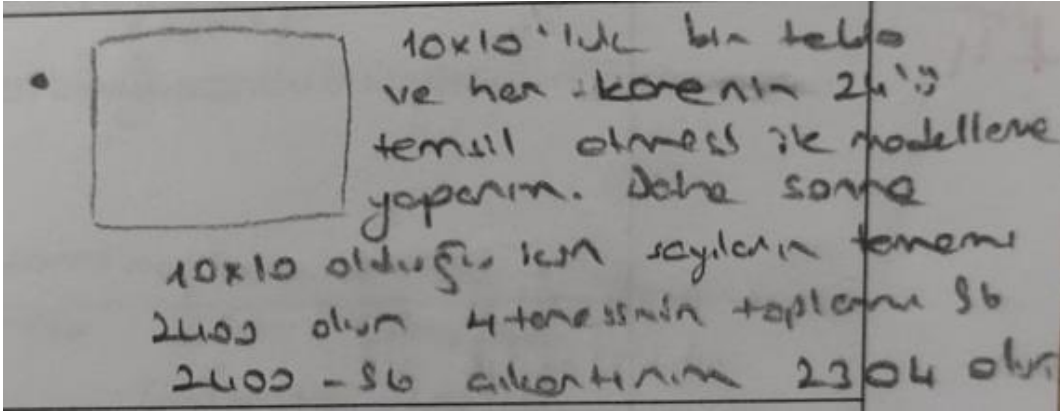 10x10'luk bir tablo
ve her karenin 24'ü
temsil etmesi ile modelleme
yaparım. Daha sonra
10x10 olduğu için sayıların tamamı
2400 olur 4 tanesinin toplamı 96
2400 - 96 çıkartırım 2304 olur